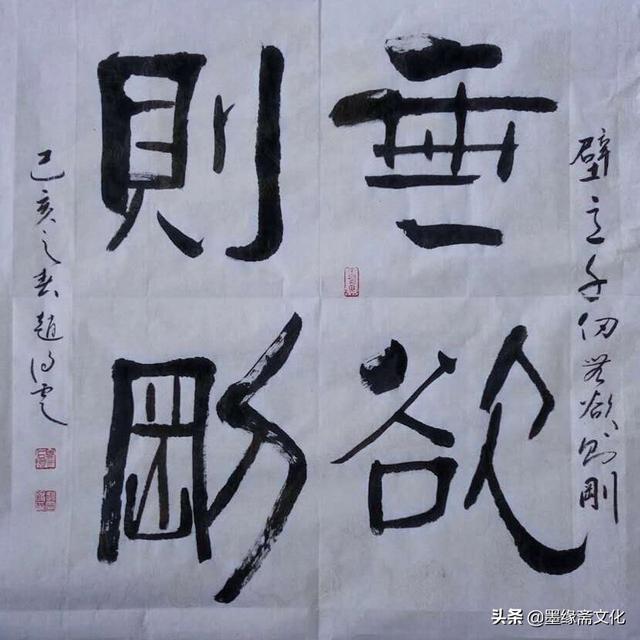 壁立千仞無欲則剛
無欲
則剛
己亥之春趙得雲
头条 @墨缘斋文化